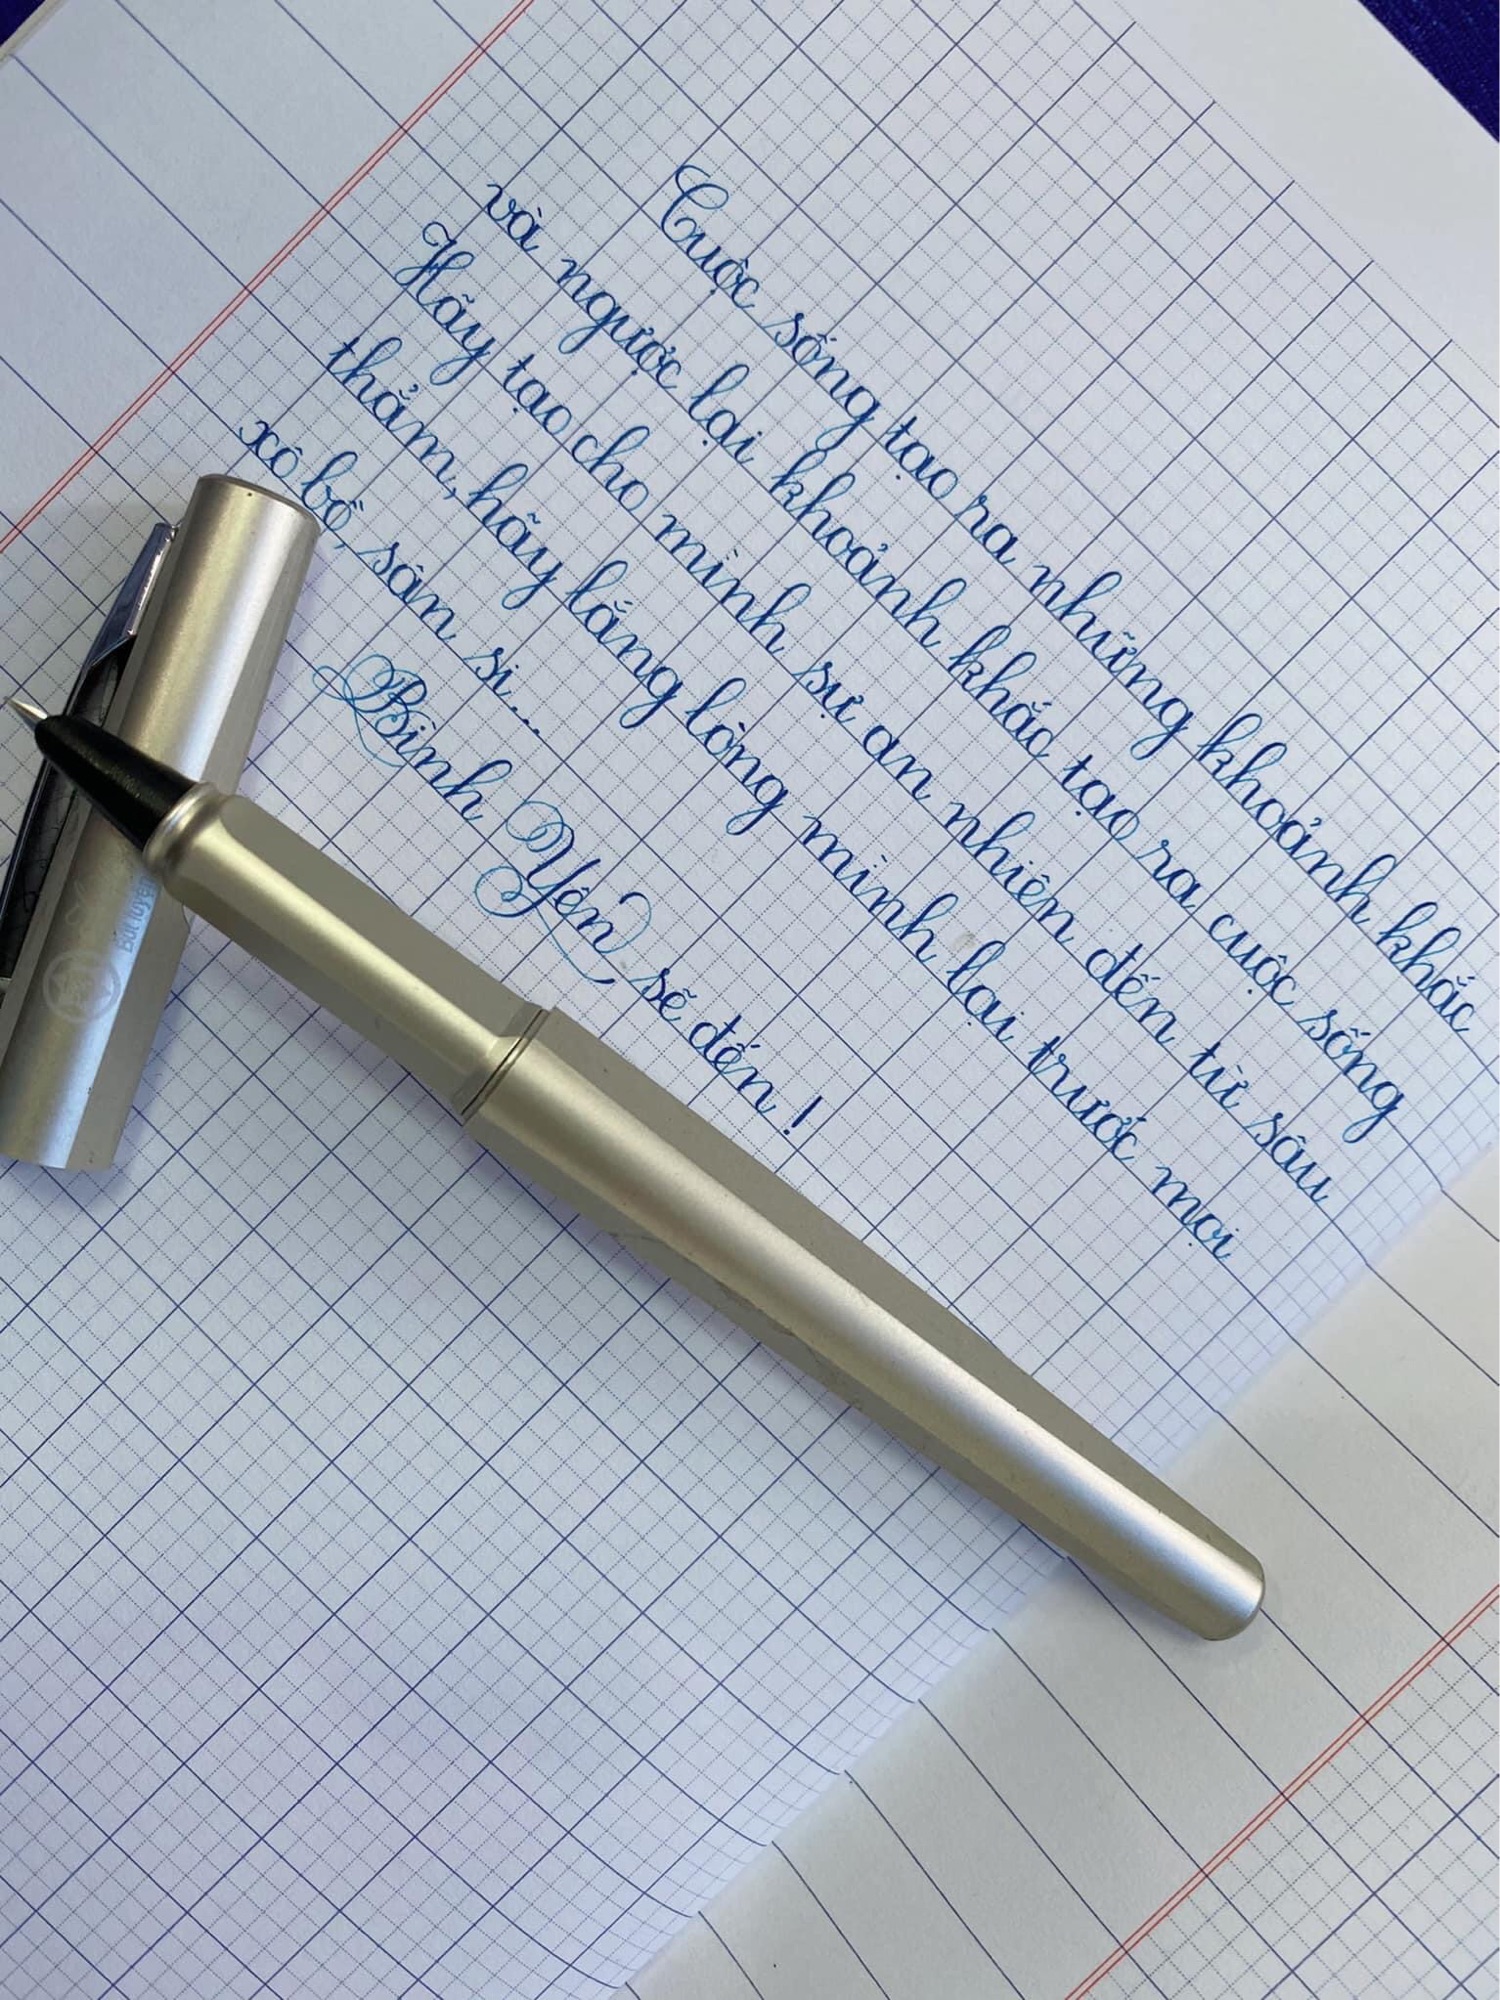 Cuộc sống tạo ra những khoảnh khắc
và ngược lại khoảnh khắc tạo ra cuộc sống
Hãy tạo cho mình sự an nhiên đến từ sâu
thẳm, hãy lắng lòng mình lại trước mọi
xô bồ, sân si...
Bình Yên sẽ đến !
Bút luyện